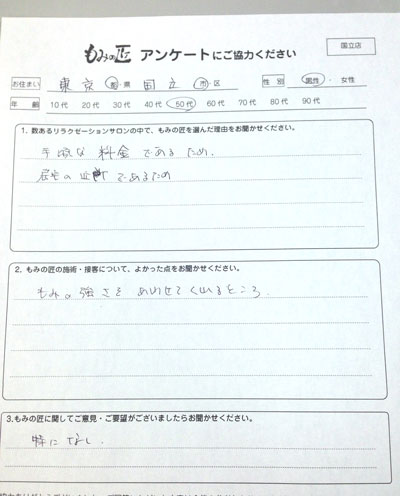 もみの匠 アンケートにご協力ください
国立店
お住まい 東京 都・県 国立 市・区 性別 男性・女性
年齢 10代 20代 30代 40代 50代 60代 70代 80代 90代
1. 数あるリラクゼーションサロンの中で、もみの匠を選んだ理由をお聞かせください。
手頃な料金であるため.
であるため
2. もみの匠の施術・接客について、よかった点をお聞かせください。
もみの強さをあわせてくれるところ.
3.もみの匠に関してご意見・ご要望がございましたらお聞かせください。
特になし.